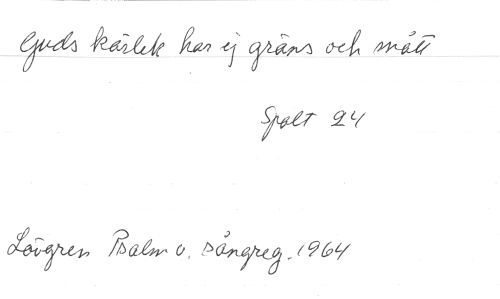 Guds kärlek har ej gräns och mått
Spalt 24
Lövgren Psalm o. sångreg. 1964